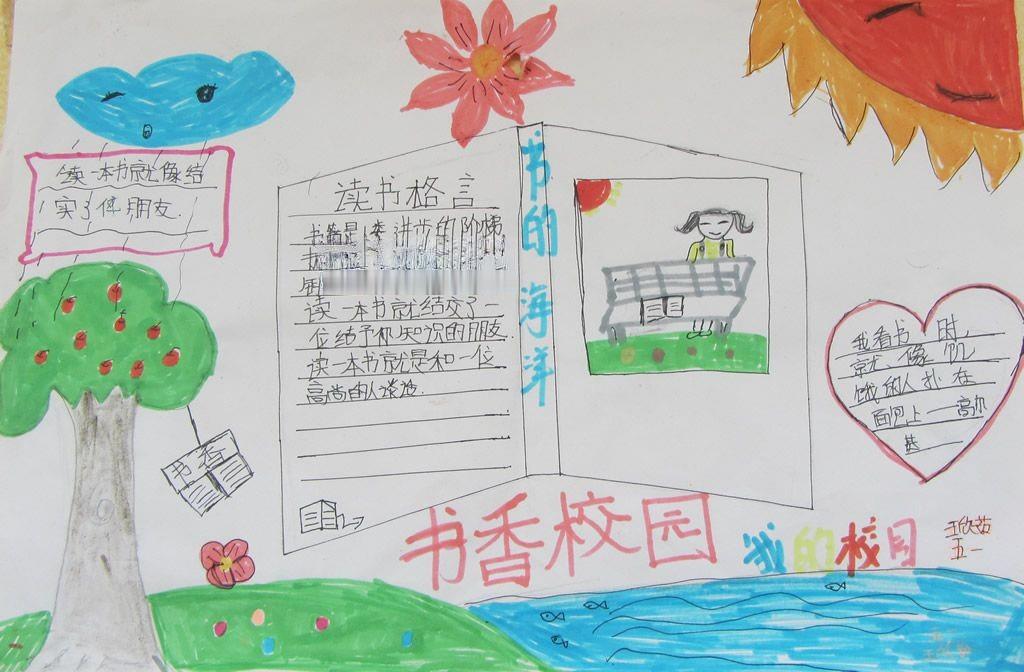 读一本书就像结
实了伴朋友.
读书格言
书籍是人类进步的阶梯,
书
读一本书就结交了一
位给予你知识的朋友
读一本书就是和一位
高尚的人谈话.
书的海洋
我看书时,
就像饥
饿的人扑在
面包上——高尔
基——
书香
书香校园
我的校园
王欣茹
五一